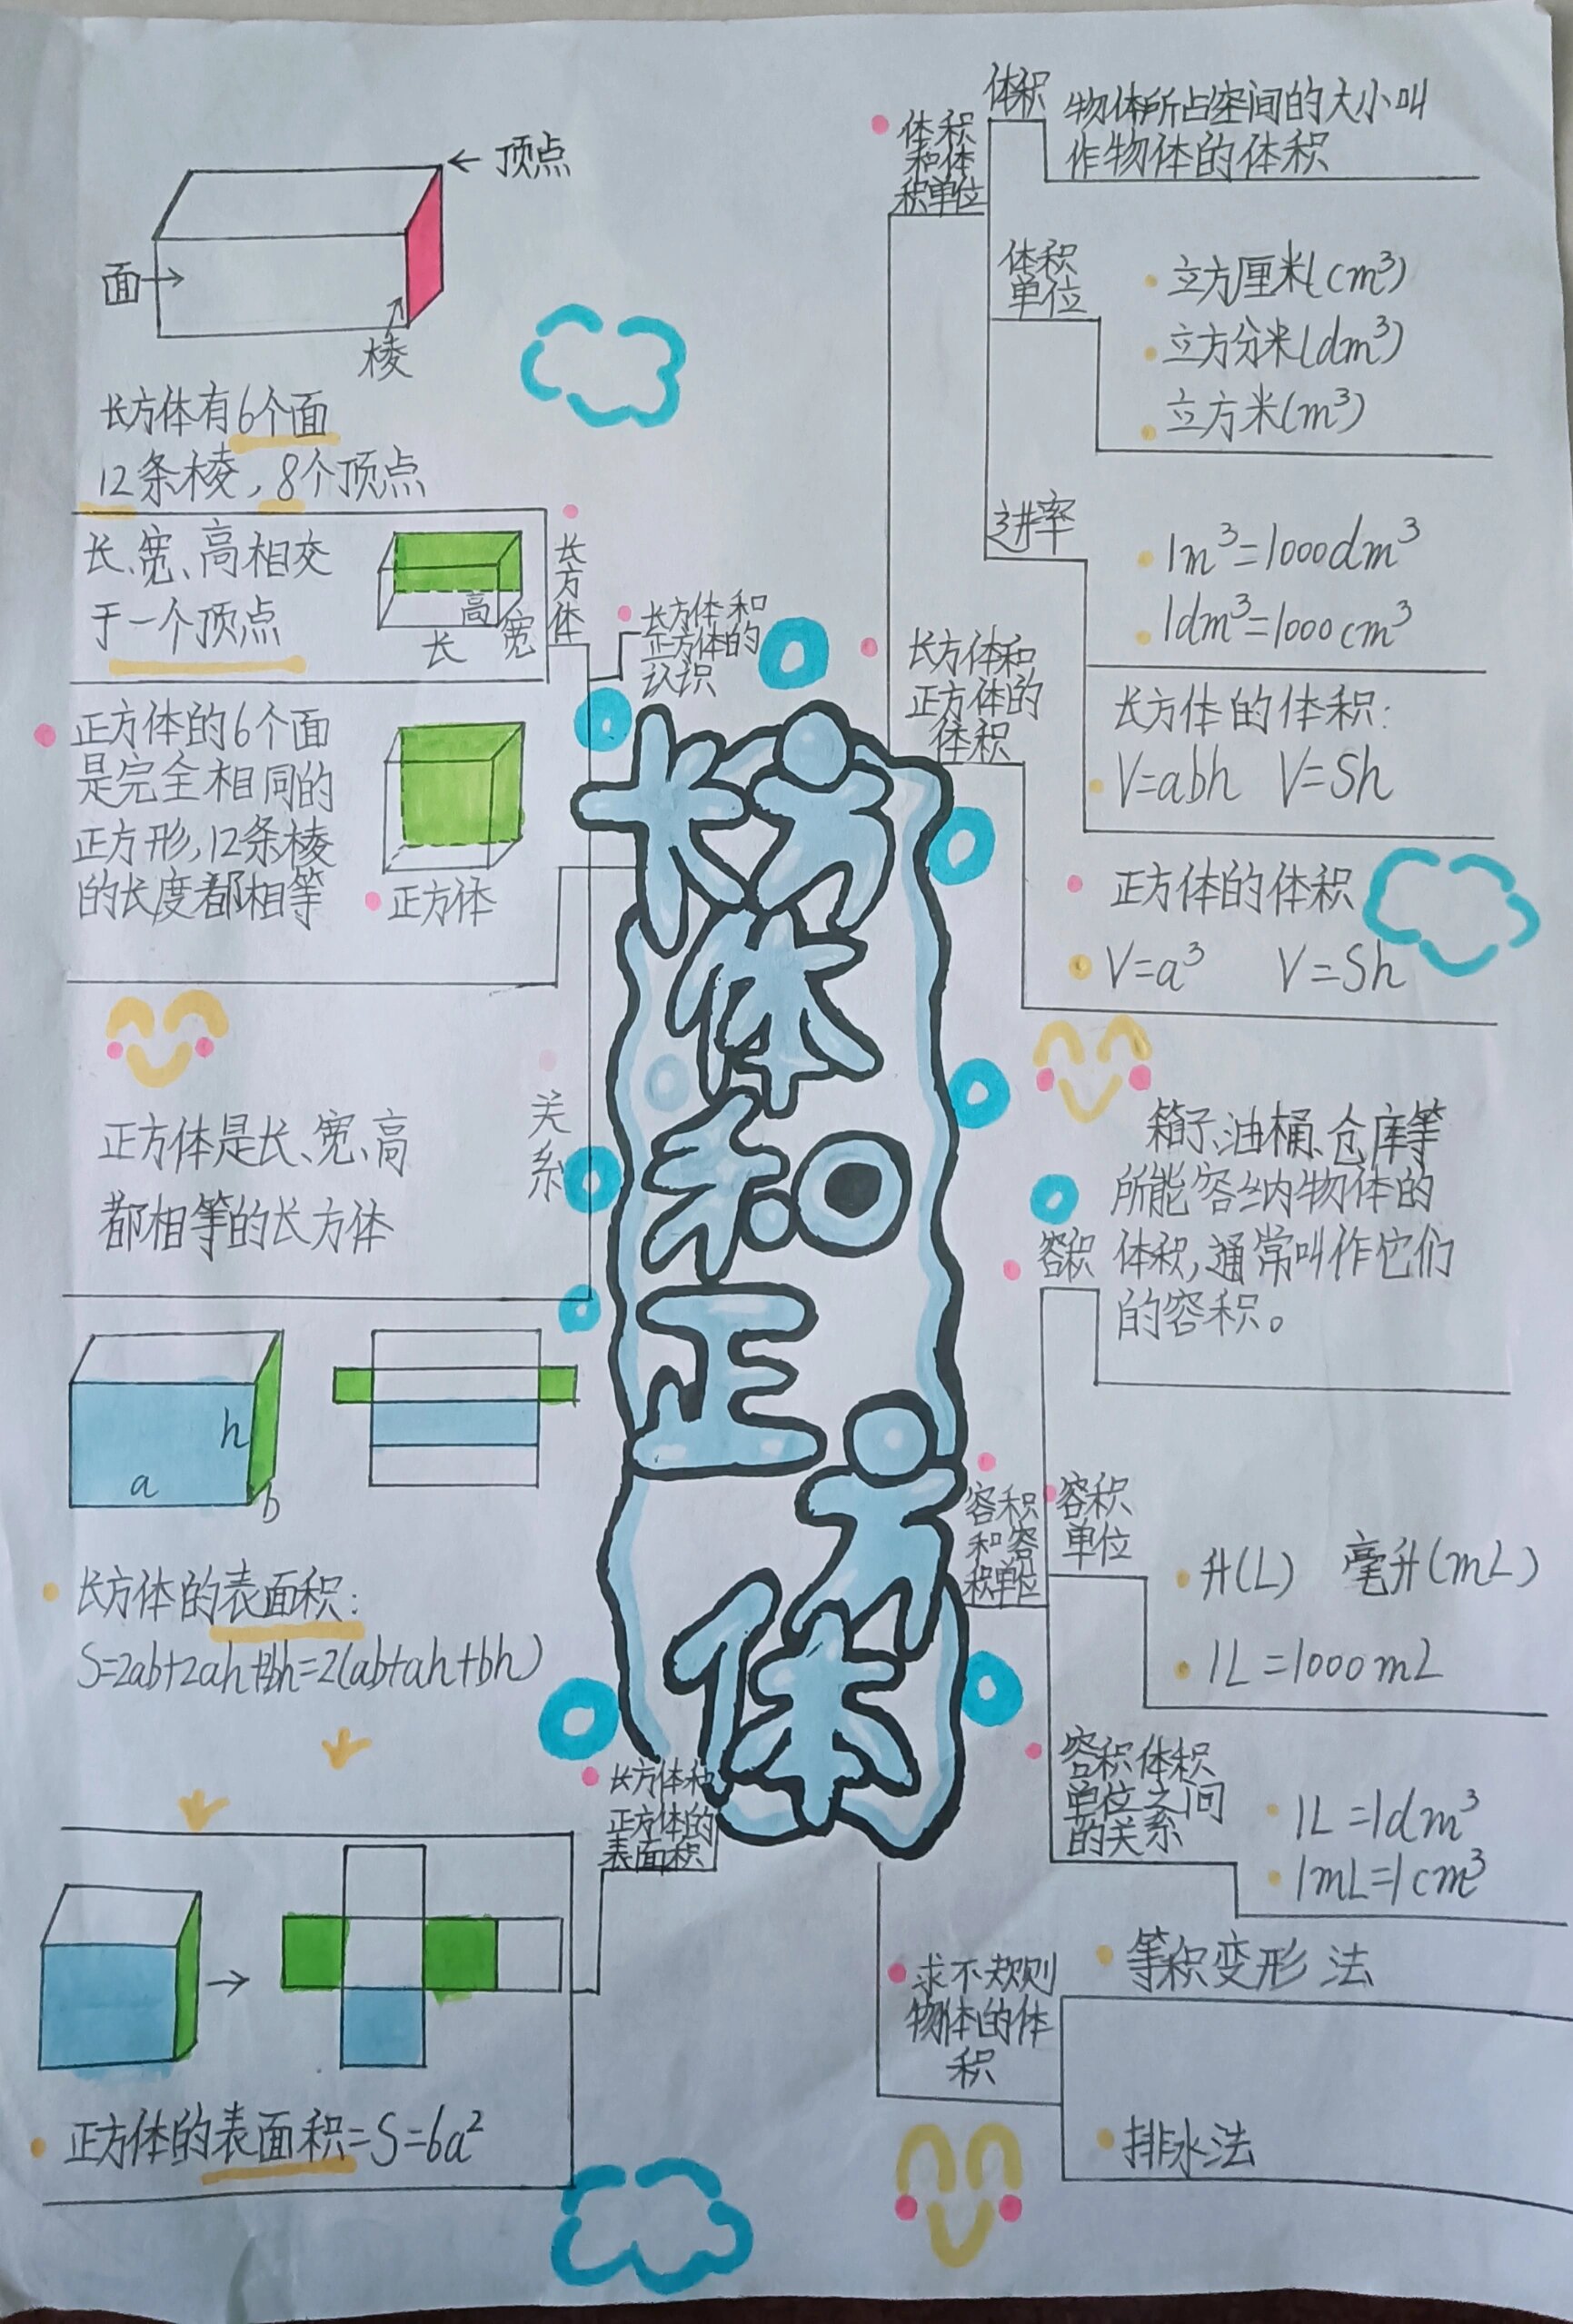 长方体和正方体
长方体和
正方体的
认识
长方体
← 顶点
面→
棱
长方体有6个面
12条棱,8个顶点
长、宽、高相交
于一个顶点
高
长 宽
正方体的6个面
是完全相同的
正方形,12条棱
的长度都相等
正方体
关系
正方体是长、宽、高
都相等的长方体
长方体和
正方体的
表面积
h
a
b
长方体的表面积:
S=2ab+2ah+2bh=2(ab+ah+bh)
正方体的表面积=S=6a²
体积
和体
积单位
体积
物体所占空间的大小叫
作物体的体积
体积
单位
立方厘米(cm³)
立方分米(dm³)
立方米(m³)
进率
1m³=1000dm³
1dm³=1000cm³
长方体和
正方体的
体积
长方体的体积:
V=abh V=Sh
正方体的体积
V=a³ V=Sh
容积
和容
积单位
容积
箱子、油桶、仓库等
所能容纳物体的
体积,通常叫作它们
的容积。
容积
单位
升(L) 毫升(mL)
1L=1000mL
容积体积
单位之间
的关系
1L=1dm³
1mL=1cm³
求不规则
物体的体
积
等积变形法
排水法